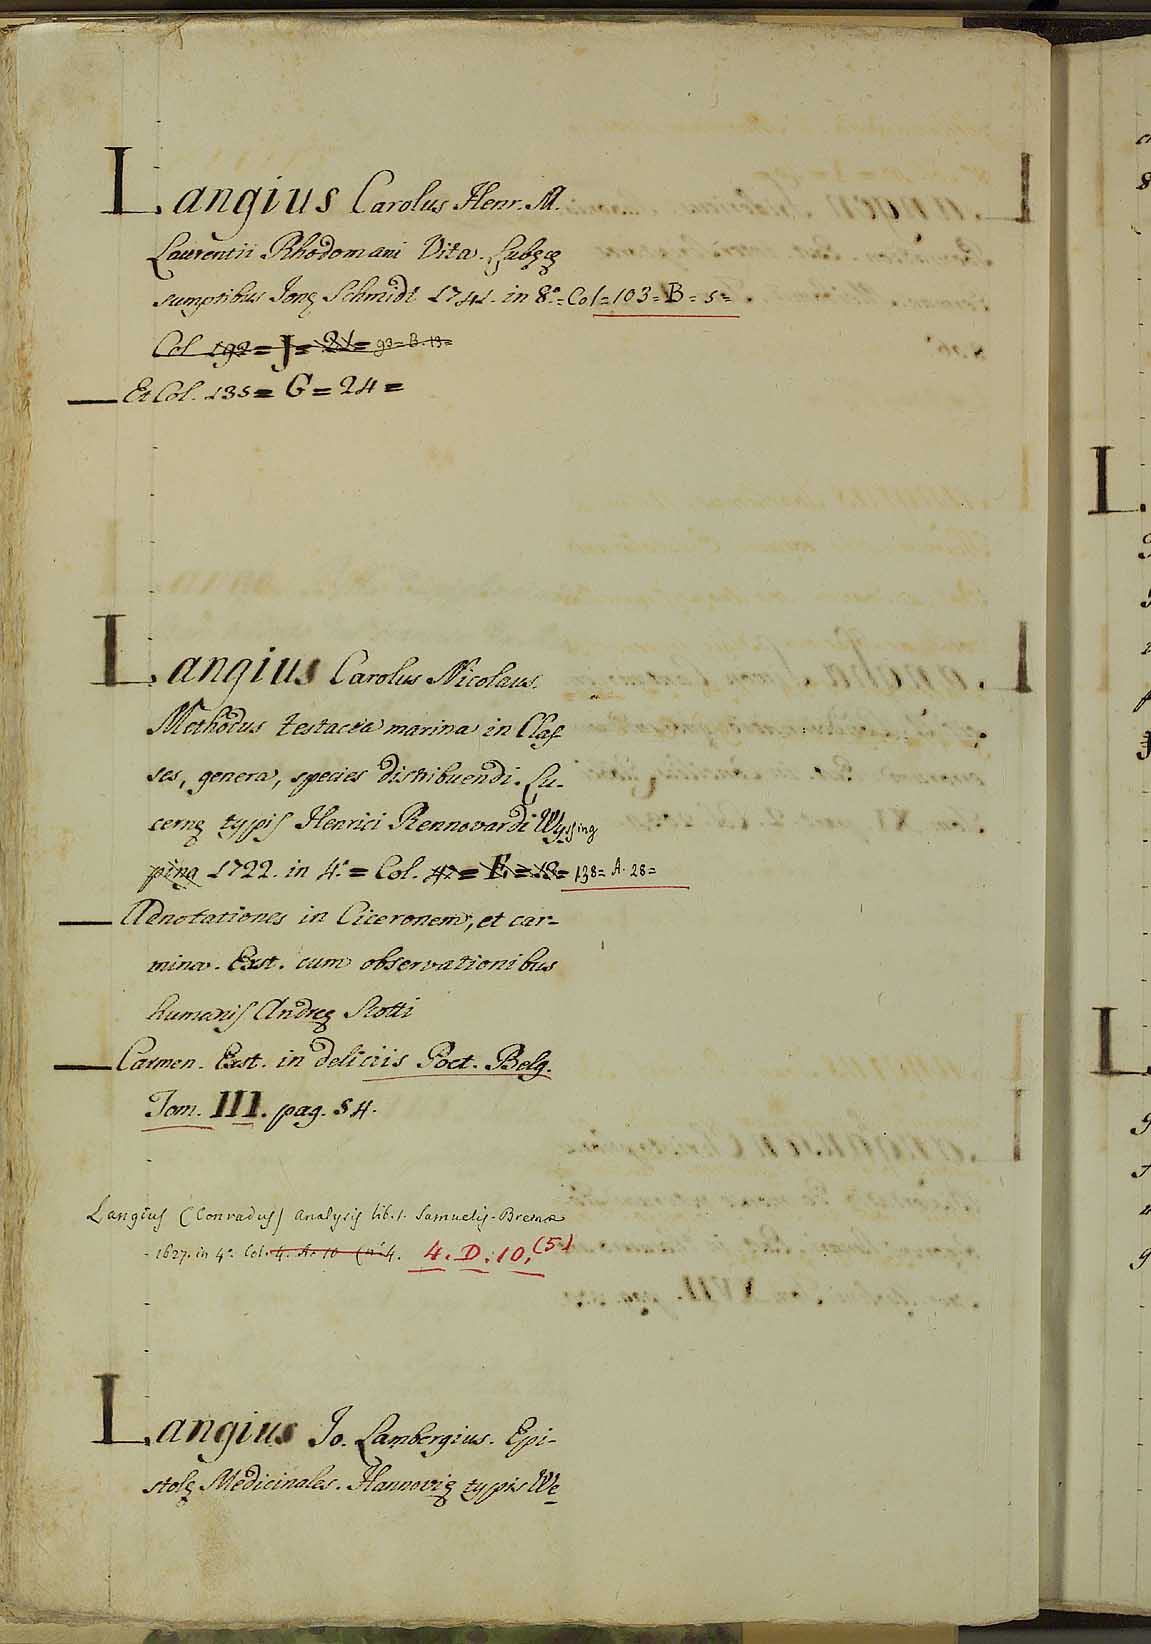 Langius Carolus Henr. M.
Laurentii Rhodomani Vita. Lubecę
sumptibus Jonę Schmidt 1741. in 8.° = Col = 103 = B = 5 =
Col 192 = J = 21 = 93 = B. 13 =
Et Col. 135 = G = 24 =
Langius Carolus Nicolaus.
Methodus testacea marina in Clas-
ses, genera, species distribuendi. Lu-
cernę typis Henrici Rennovardi Wyssing
ping 1722. in 4.° = Col. 47 = E = 18 = 138 = A. 28 =
Adnotationes in Ciceronem, et car-
mina. Exst. cum observationibus
humanis Andreę Scotti
Carmen. Exst. in deliciis Poet. Belg.
Tom. III. pag. 54.
Langius (Conradus) Analysis lib. 1. Samuelis - Bremæ
1627. in 4.° Col. 4. A. 10 (n.° 4. 4. D. 10. (5)
Langius Jo. Lambergius. Epi-
stolę Medicinales. Hannovię typis We